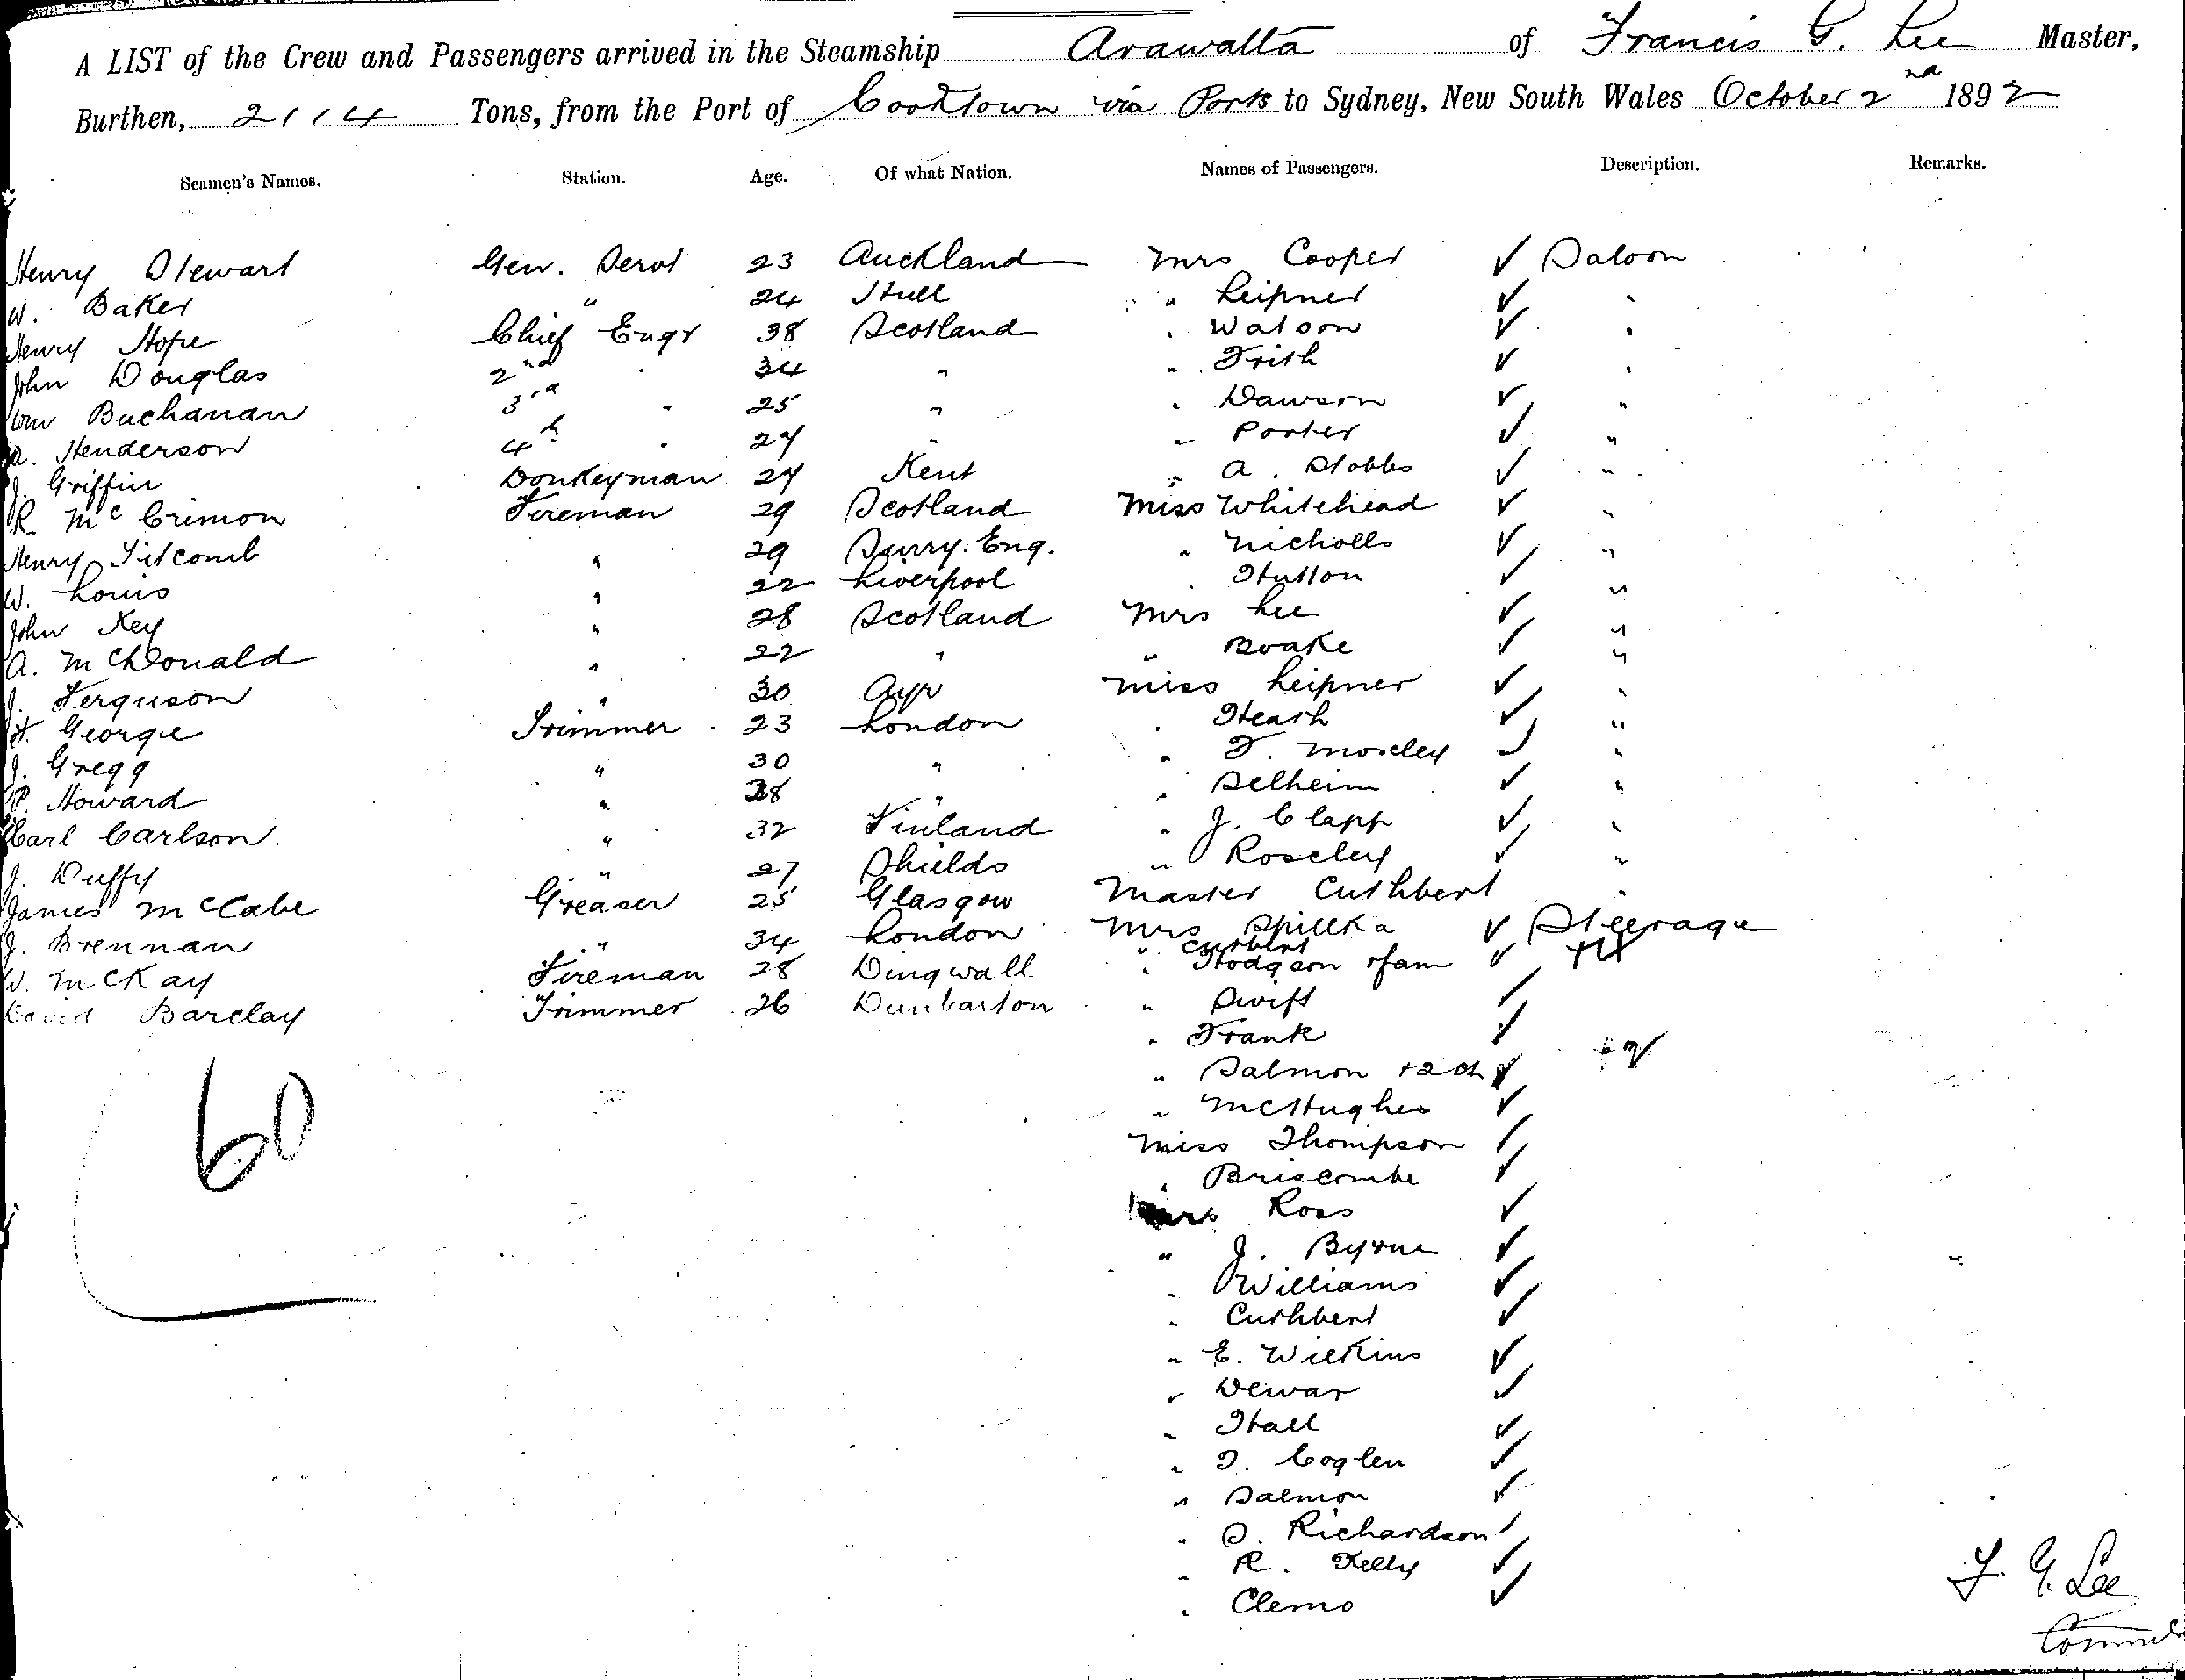 A LIST of the Crew and Passengers arrived in the Steamship Arawatta of Francis G. Lee Master,
Burthen, 2114 Tons, from the Port of Cooktown via Ports to Sydney, New South Wales October 2nd 1892
Seamen's Names. Station. Age. Of what Nation. Names of Passengers. Description. Remarks.
Henry Stewart Gen. Servt 23 Auckland Mrs Cooper ✓ Saloon
W. Baker " 24 Hull " Leipner ✓ "
Henry Hope Chief Engr 38 Scotland " Watson ✓ "
John Douglas 2nd " 34 " " Frith ✓ "
Wm Buchanan 3rd " 25 " " Dawson ✓ "
A. Henderson 4th " 27 " " Porter ✓ "
J. Griffin Donkeyman 27 Kent " A. Stobbs ✓ "
R McCrimon Fireman 29 Scotland Miss Whitehead ✓ "
Henry Titcomb " 29 Surry. Eng. " Nicholls ✓ "
W. Louis " 22 Liverpool " Hutton ✓ "
John Key " 28 Scotland Mrs Lee ✓ "
A. McDonald " 22 " " Boake ✓ "
J. Ferguson " 30 Ayr Miss Leipner ✓ "
H. George Trimmer 23 London " Heath ✓ "
J. Gregg " 30 " " F. Moseley ✓ "
P. Howard " 28 " " Selheim ✓ "
Carl Carlson " 32 Finland " J. Clapp ✓ "
J. Duffy " 27 Shields " Roseley ✓ "
James McCabe Greaser 25 Glasgow Master Cuthbert "
J. Brennan " 34 London Mrs Spillka ✓ Steerage
" Cuthbert
W. McKay Fireman 28 Dingwall " Hodgson & fam ✓
David Barclay Trimmer 26 Dunbarton " Swift ✓
" Frank ✓
" Salmon + 2 ch ✓ + 2
" McHughes ✓
Miss Thompson ✓
" Briscombe ✓
60
Mrs Ross ✓
" J. Byrne ✓
" Williams ✓
" Cuthbert ✓
" E. Wilkins ✓
" Dewar ✓
" Hall ✓
" T. Coglen ✓
" Salmon ✓
" S. Richardson ✓
" R. Kelly ✓
" Clemo ✓
F. G. Lee